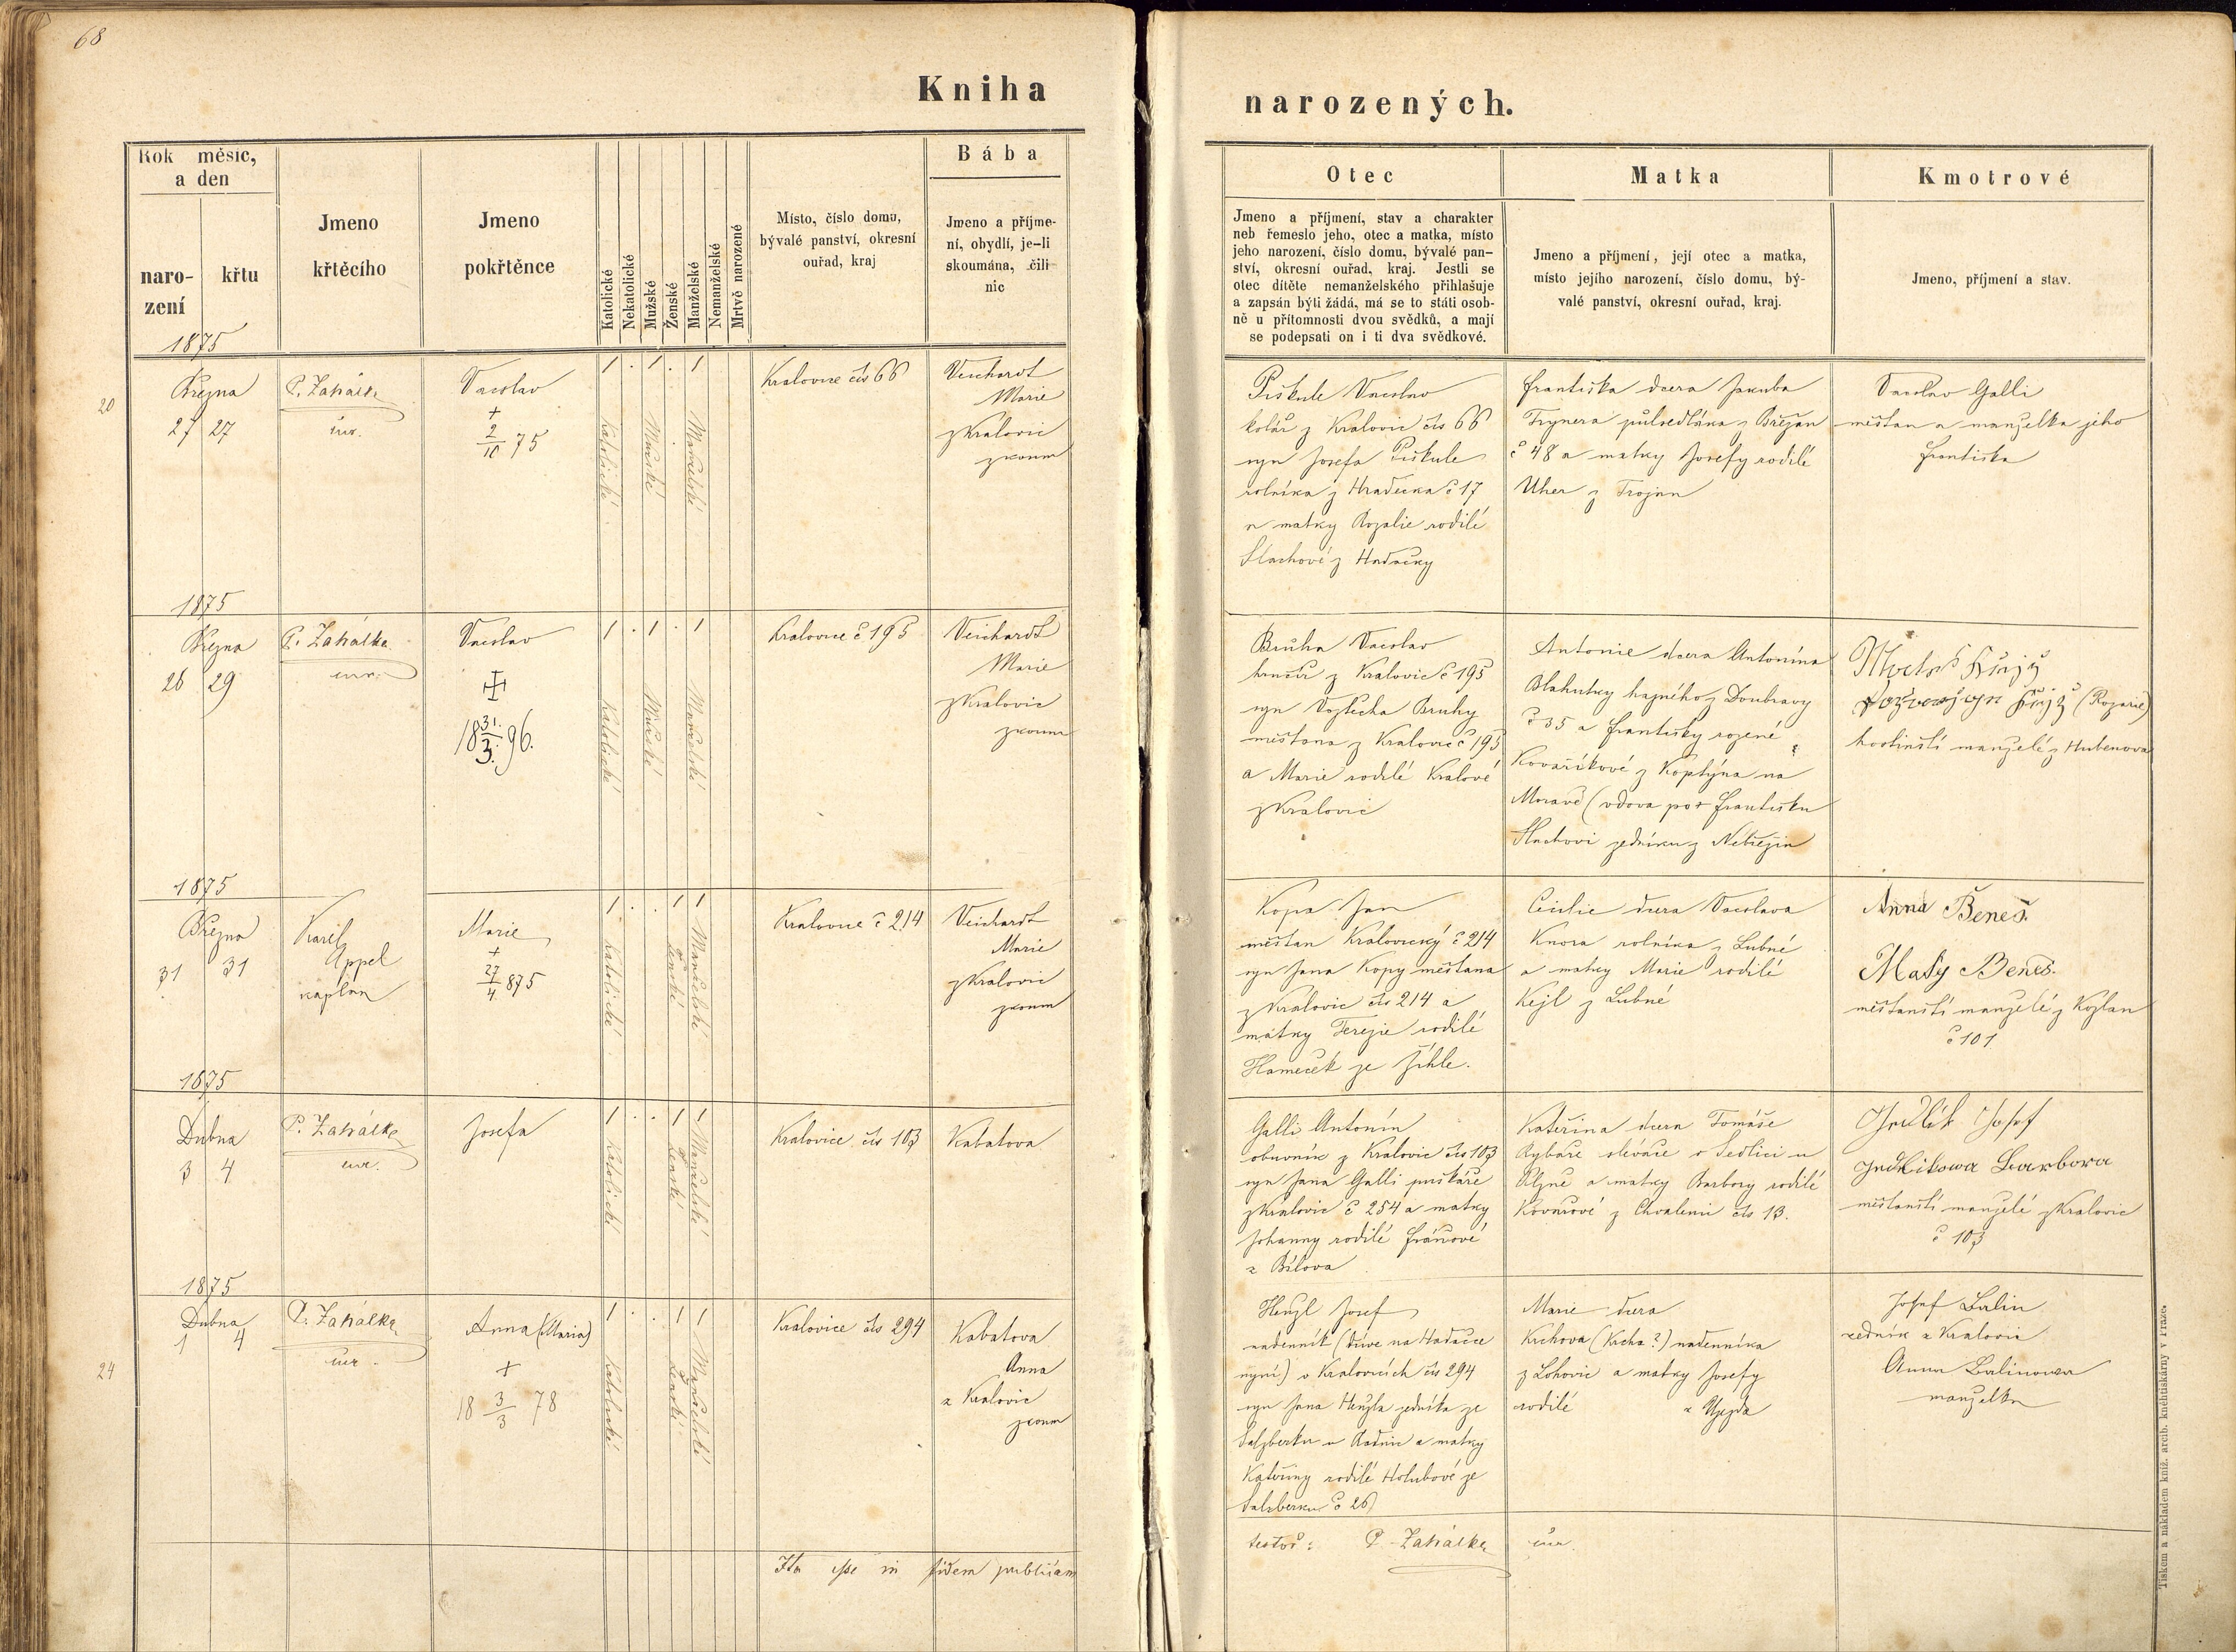 68
Kniha
narozených.
Rok měsíc,
a den
naro-
zení
křtu
Jmeno
křtěcího
Jmeno
pokřtěnce
Katolické
Nekatolické
Mužské
Ženské
Manželské
Nemanželské
Mrtvě narozené
Místo, číslo domu,
bývalé panství, okresní
ouřad, kraj
Bába
Jmeno a příjme-
ní, obydlí, je-li
skoumána, čili
nic
Otec
Jmeno a příjmení, stav a charakter
neb řemeslo jeho, otec a matka, místo
jeho narození, číslo domu, bývalé pan-
ství, okresní ouřad, kraj. Jestli se
otec dítěte nemanželského přihlašuje
a zapsán býti žádá, má se to státi osob-
ně u přítomnosti dvou svědků, a mají
se podepsati on i ti dva svědkové.
Matka
Jmeno a příjmení, její otec a matka,
místo jejího narození, číslo domu, bý-
valé panství, okresní ouřad, kraj.
Kmotrové
Jmeno, příjmení a stav.
1875
20
Března
27 27
P. Zahálka
Vácslav
+
2/10 75
1 . 1 . 1
Katolické
Mužské
Manželské
Kralovice čís 66
Veichardt
Marie
z Kralovic
zkoum
Piškule Vácslav
kolář z Kralovic čís 66
syn Josefa Piškule
rolníka z Hradecka č 17
a matky Rozalie rodilé
Šlachové z Hadačky
Františka dcera Jakuba
Trynera půlsedláka z Břežan
č 48 a matky Josefy rodilé
Uher z Trojan
Vácslav Galli
měštan a manželka jeho
Františka
1875
Března
26 29
P. Zahálka
Vácslav
18 31./3. 96.
1 . 1 . 1
Katolické
Mužské
Manželské
Kralovice č 195
Veichardt
Marie
z Kralovic
zkoum
Brůha Vácslav
hrnčíř z Kralovic č 195
syn Vojtěcha Bruhy
měštana z Kralovic č 195
a Marie rodilé Kralové
z Kralovic
Antonie dcera Antonína
Blahutky hajného z Doubravy
č 35 a Františky rozené
Kovaříkové z Koptýna na
Moravě (vdova po Františku
Šlachovi zedníku z Nebřezin
(Rozarie)
hostinští manželé z Hubenova
1875
Března
31 31
Karel
Appel
kaplan
Marie
+
27/4 875
1 . . 1 1
Katolické
Ženské
Manželské
Kralovice č 214
Veichardt
Marie
z Kralovic
zkoum
Kopa Jan
měštan Kralovický č 214
syn Jana Kopy měštana
z Kralovic čís 214 a
matky Terezie rodilé
Hameček ze Žihle.
Cecilie dcera Vácslava
Knora rolníka z Lubné
a matky Marie rodilé
Kejl z Lubné
Anna Beneš.
Matěj Beneš.
měštanští manželé z Kožlan
č 101
1875
Dubna
3 4
P. Zahálka
Josefa
1 . . 1 1
Katolické
Ženské
Manželské
Kralovice čís 103
Kabatova
Galli Antonín
obuvník z Kralovic čís 103
syn Jana Galli puškáře
z Kralovic č 254 a matky
Johanny rodilé Fránové
z Bílova
Kateřina dcera Tomáše
Rybáře slévače v Sedlici u
Plzně a matky Barbory rodilé
Kovařové z Chválenic čís 13.
Jedlik Josef
Jedlikowa Barbora
měštanští manželé z Kralovic
č 103
1875
24
Dubna
1 4
P. Zahálka
Anna (Maria)
+
18 3/3 78
1 . . 1 1
Katolické
Ženské
Manželské
Kralovice čís 294
Kabatova
Anna
z Kralovic
zkoum
Henzl Josef
nadenník (dříve na Hadačce
nyní) v Kralovicích čís 294
syn Jana Henzla zedníka ze
Salzberku u Radnic a matky
Kateřiny rodilé Holubové ze
Salzberku č 26
Marie dcera
Krchova (Krcha?) nadenníka
z Lohovic a matky Josefy
rodilé z Újezda
Josef Balin
zedník z Kralovic
Anna Balinowa
manželka
Ita esse in fidem publicam
testor: P. Zahálka
Tiskem a nákladem kníž. arcib. knihtiskárny v Praze.